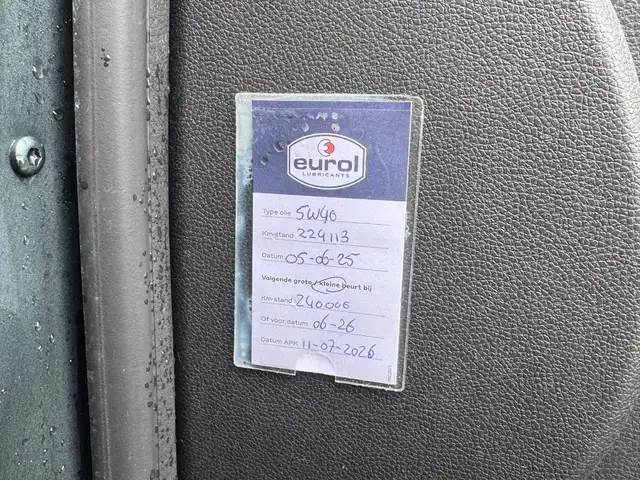 eurol
LUBRICANTS
Type olie 5W40
Km-stand 224113
Datum 05-06-25
Volgende grote / kleine beurt bij
Km-stand 240000
Of voor datum 06-26
Datum APK 11-07-2026